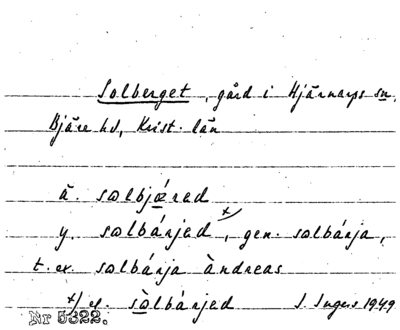 Solberget, gård i Hjärnarps sn,
Bjäre hd, Krist. län
ä. sœlbjǽred
y. sœlbánjed x), gen. solbánja,
t. ex. solbánja àndreas
x) el. sòlbánjed S. Ingers 1949
Nr 5322.